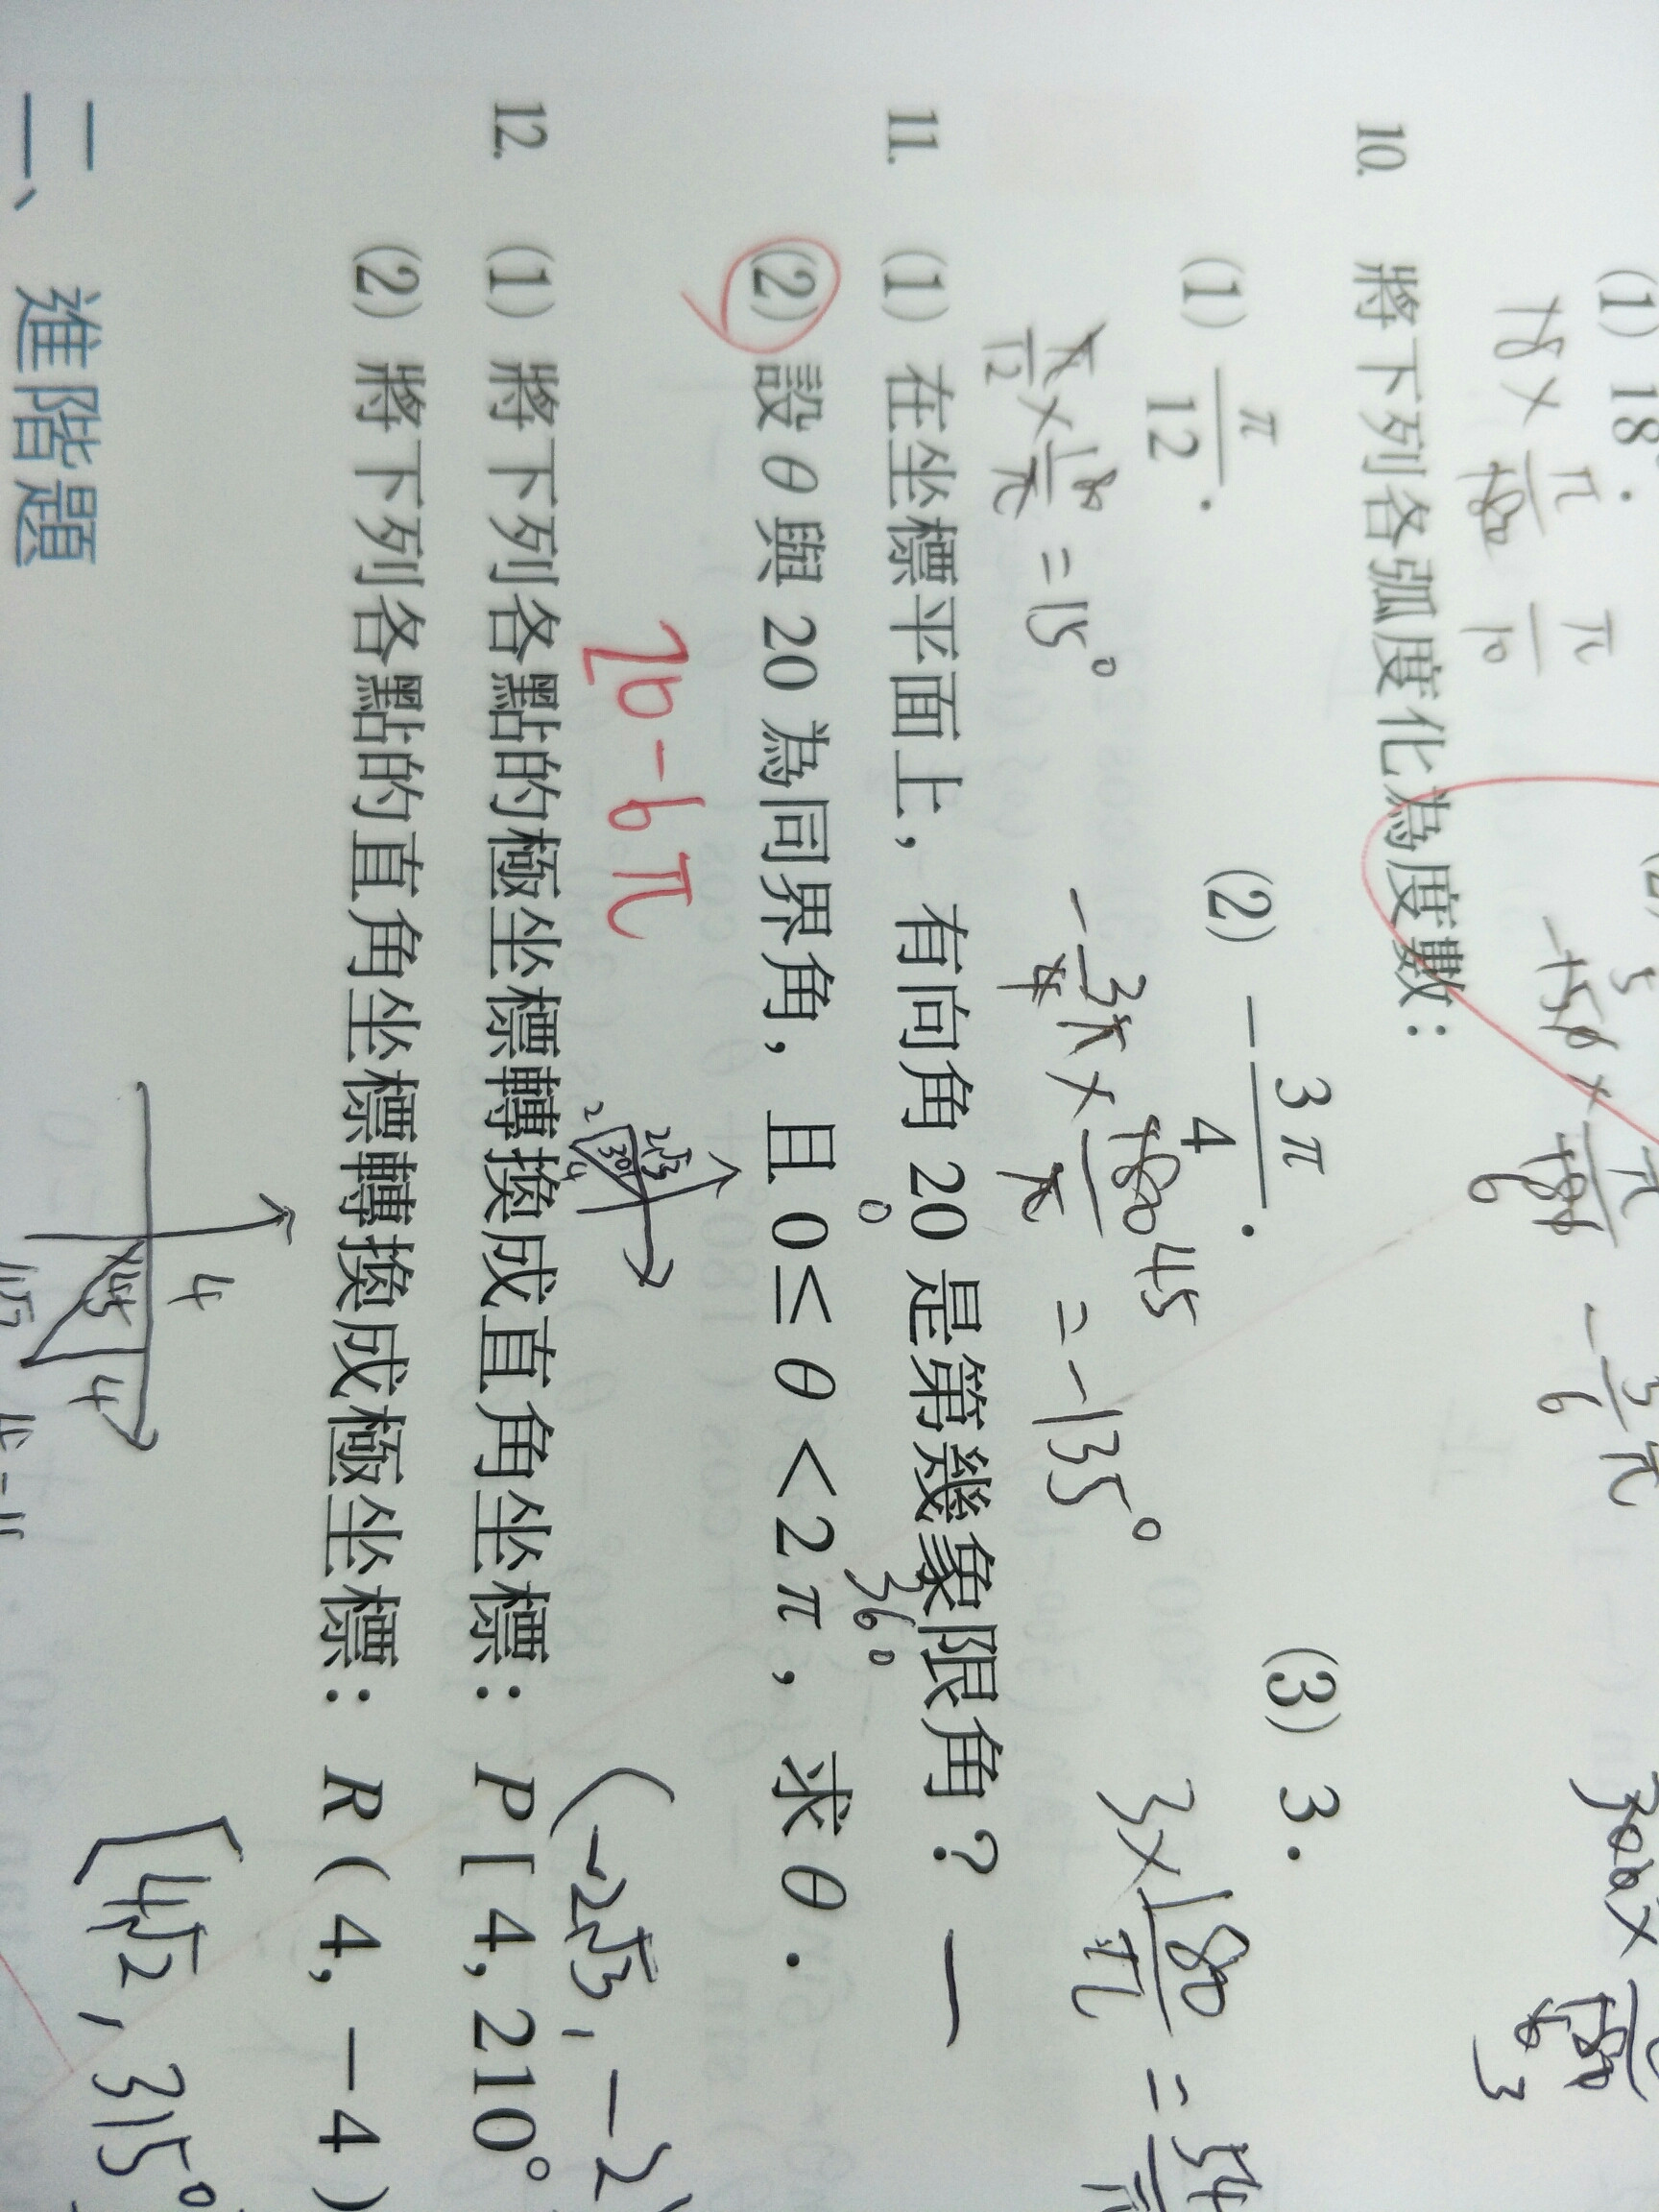 (1) 18°.
18 × π/180 π/10
-150 × π/180 6 -5/6 π
300 × 3
10. 將下列各弧度化為度數：
(1) π/12． (2) -3π/4． (3) 3．
π/12 × 180/π = 15° -3π/4 × 180/π 45 = -135° 3 × 180/π = 54
11. (1) 在坐標平面上，有向角 20 是第幾象限角？ 一
0° 360
(2) 設 θ 與 20 為同界角，且 0 ≤ θ < 2π，求 θ．
20 - 6π
2√3 2 30 4 (-2√3, -2)
12. (1) 將下列各點的極坐標轉換成直角坐標：P [ 4, 210°
(2) 將下列各點的直角坐標轉換成極坐標：R ( 4, -4 )
4 45 4 [4√2, 315°
二、進階題